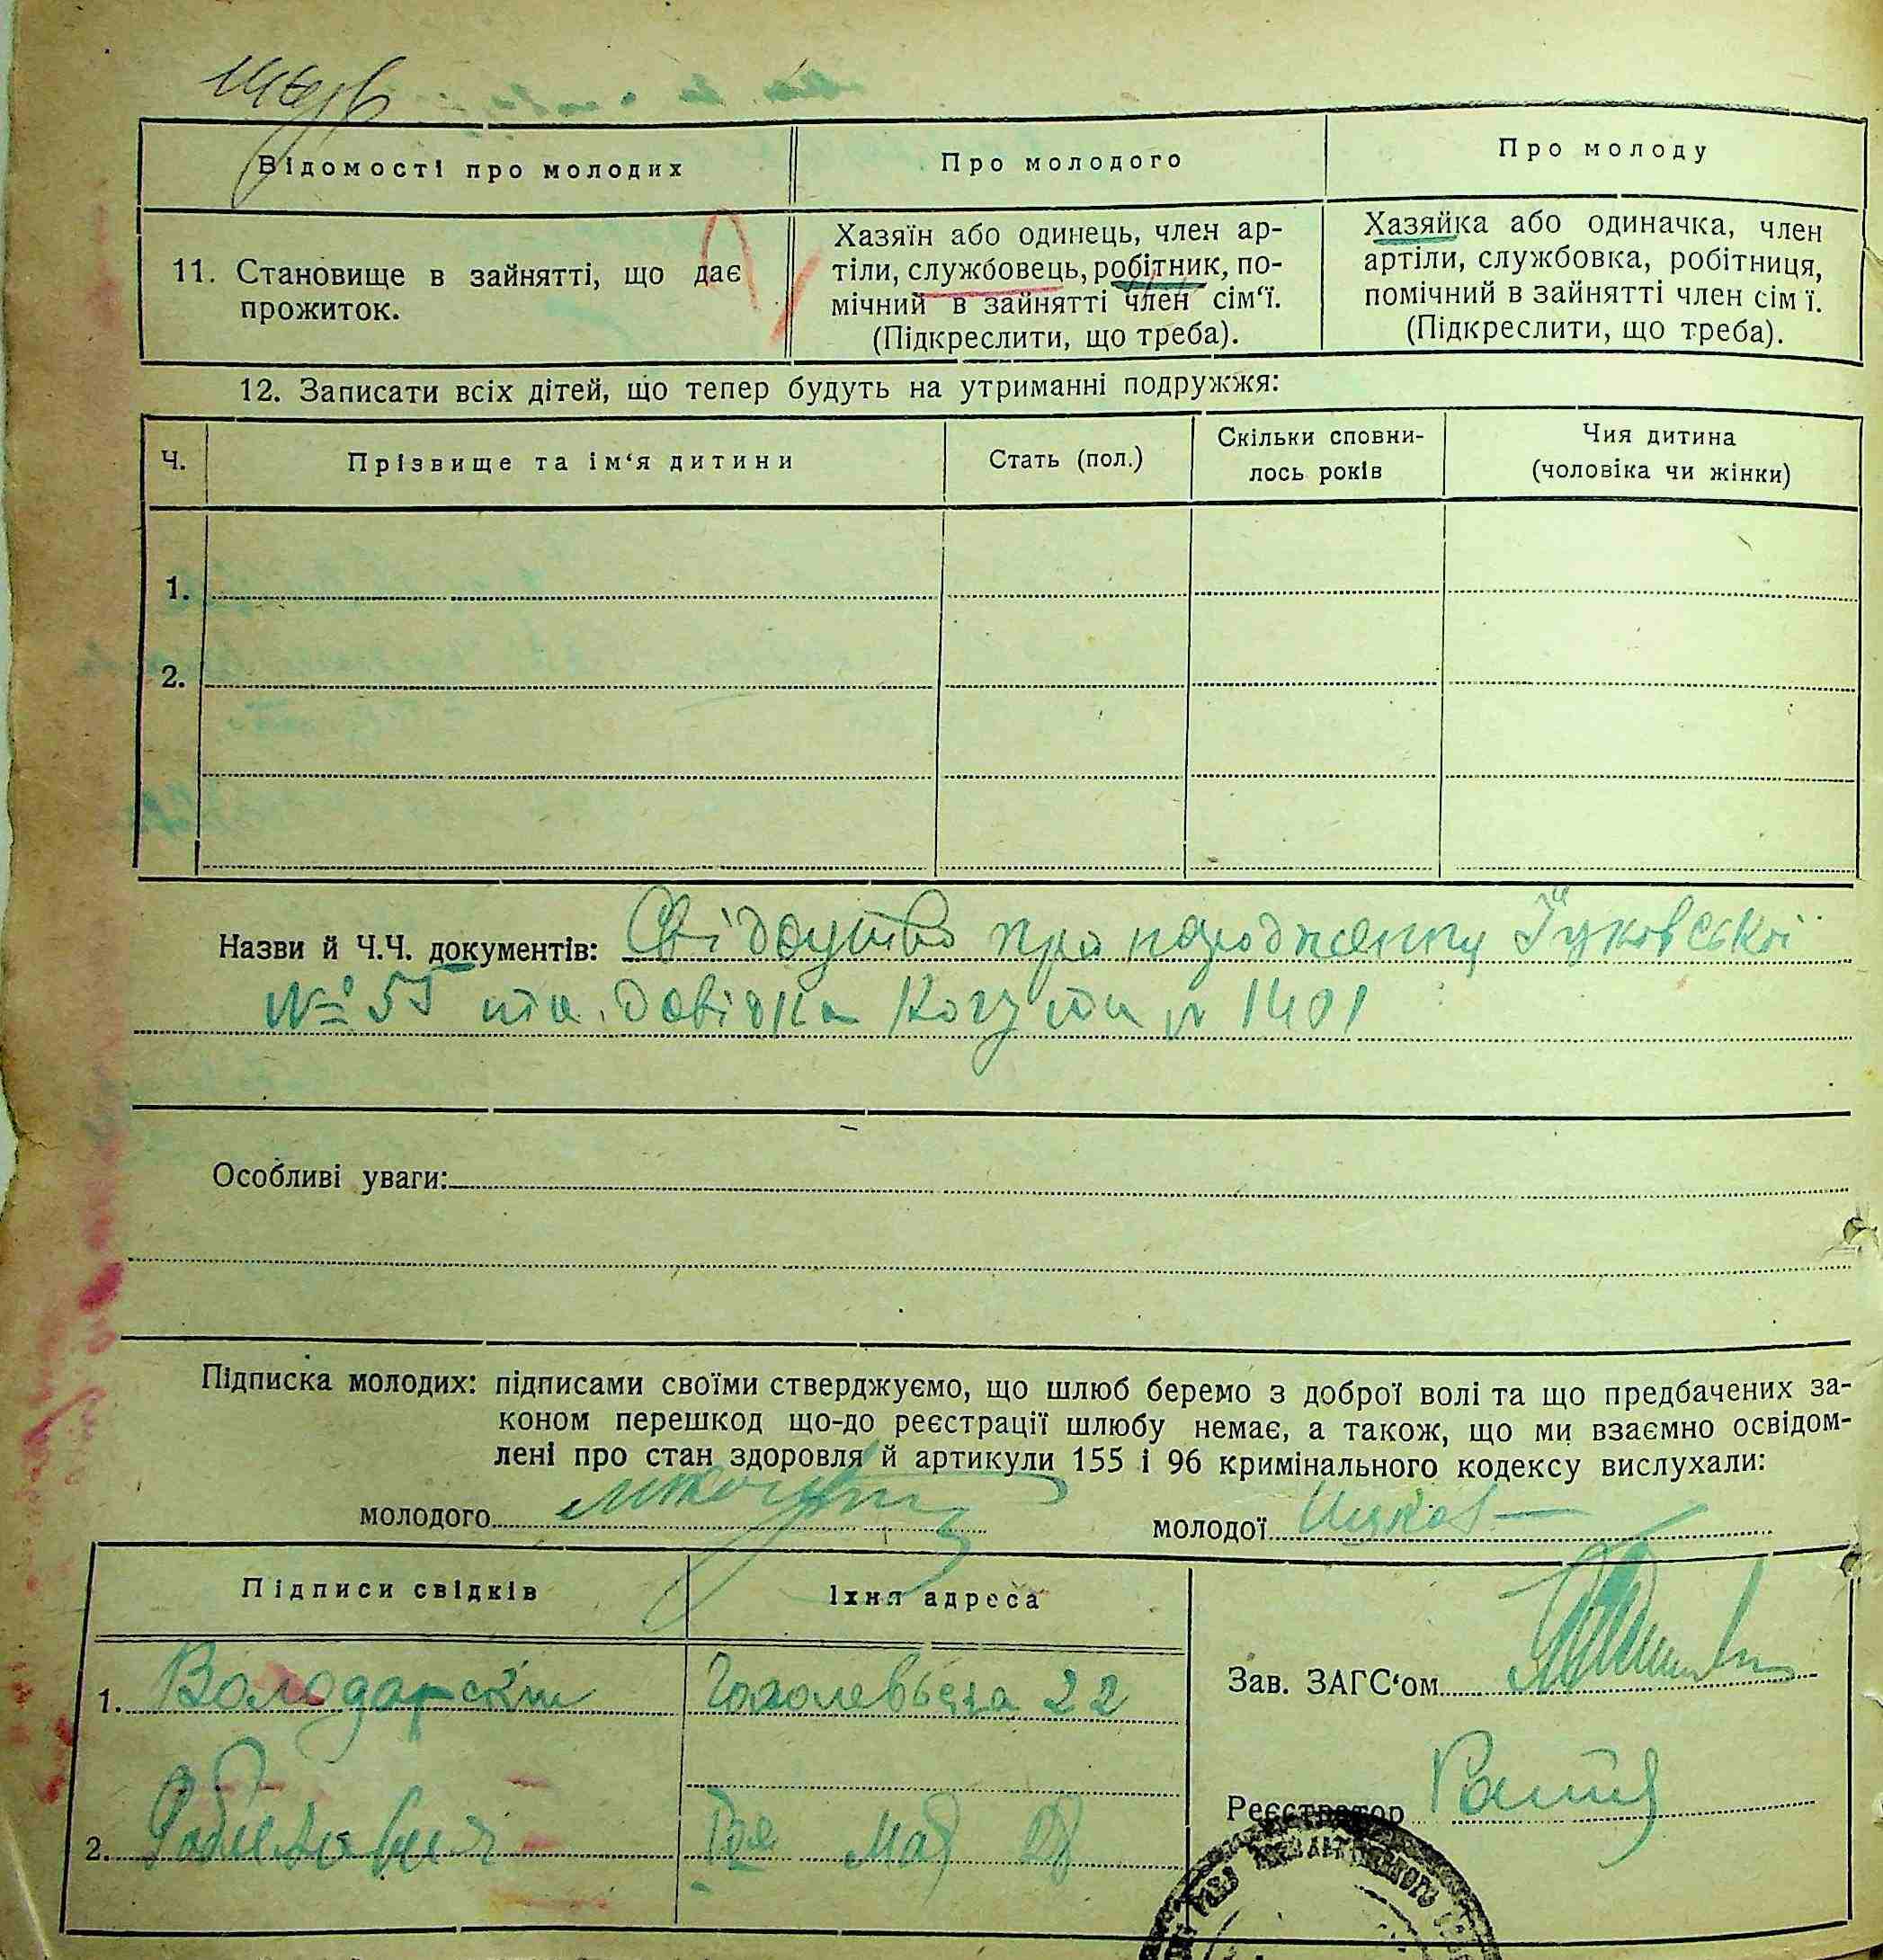 Відомості про молодих
Про молодого
Про молоду
11. Становище в зайнятті, що дає
прожиток.
Хазяїн або одинець, член ар-
тіли, службовець, робітник, по-
мічний в зайнятті член сім‘ї.
(Підкреслити, що треба).
Хазяйка або одиначка, член
артіли, службовка, робітниця,
помічний в зайнятті член сім ї.
(Підкреслити, що треба).
12. Записати всіх дітей, що тепер будуть на утриманні подружжя:
Ч.
Прізвище та ім‘я дитини
Стать (пол.)
Скільки сповни-
лось років
Чия дитина
(чоловіка чи жінки)
1.
2.
Назви й Ч.Ч. документів: про народження
№ 55 та довідка 1401
Особливі уваги:
Підписка молодих: підписами своїми стверджуємо, що шлюб беремо з доброї волі та що предбачених за-
коном перешкод що-до реєстрації шлюбу немає, а також, що ми взаємно освідом-
лені про стан здоровля й артикули 155 і 96 кримінального кодексу вислухали:
молодого
молодої
Підписи свідків
Їхня адреса
1. Володарский
22
2.
Зав. ЗАГС‘ом
Реєстратор